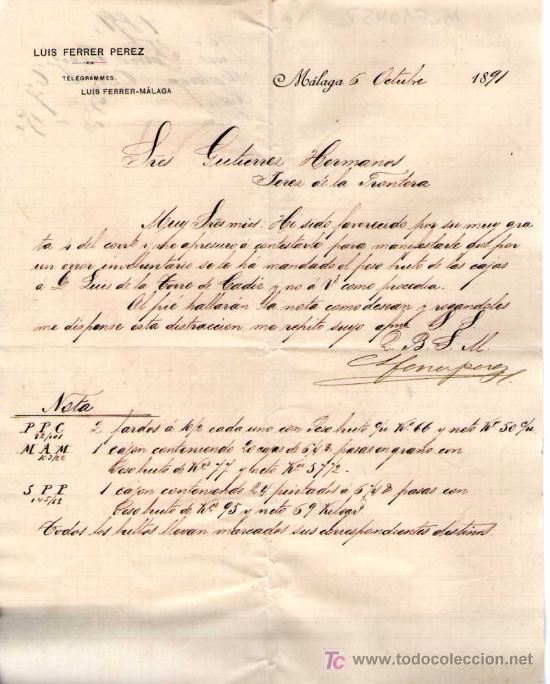 LUIS FERRER PEREZ
TÉLÉGRAMMES:
LUIS FERRER-MÁLAGA
Málaga 6 Octubre 1891
Sres Gutierrez Hermanos
Jerez de la Frontera
Muy Sres mios: Hé sido favorecido por su muy gra
ta 4 del corrte y me apresuro á contestarle para manifestarle que por
un error involuntario se le ha mandado el peso bruto de las cajas
á D. Luis de la Torre de Cadiz y no á Vs como procedia.
Al pié hallarán la nota como desean y rogandoles
me dispense esta distraccion me repito suyo afmo S. S.
Q. B. S. M.
Nota
P P C 2 fardos á 10/2 cada uno con Peso bruto Kos 66 y neto Ks 50
M A M 1 cajon conteniendo 20 cajas de pasas en grano con
Peso bruto de Kos 77 y neto Kos 57
S P P 1 cajon conteniendo 24 pasas con
Peso bruto de Ks 95 y neto 69 Kilogs
Todos los bultos llevan marcados sus correspondientes destinos
TC www.todocoleccion.net